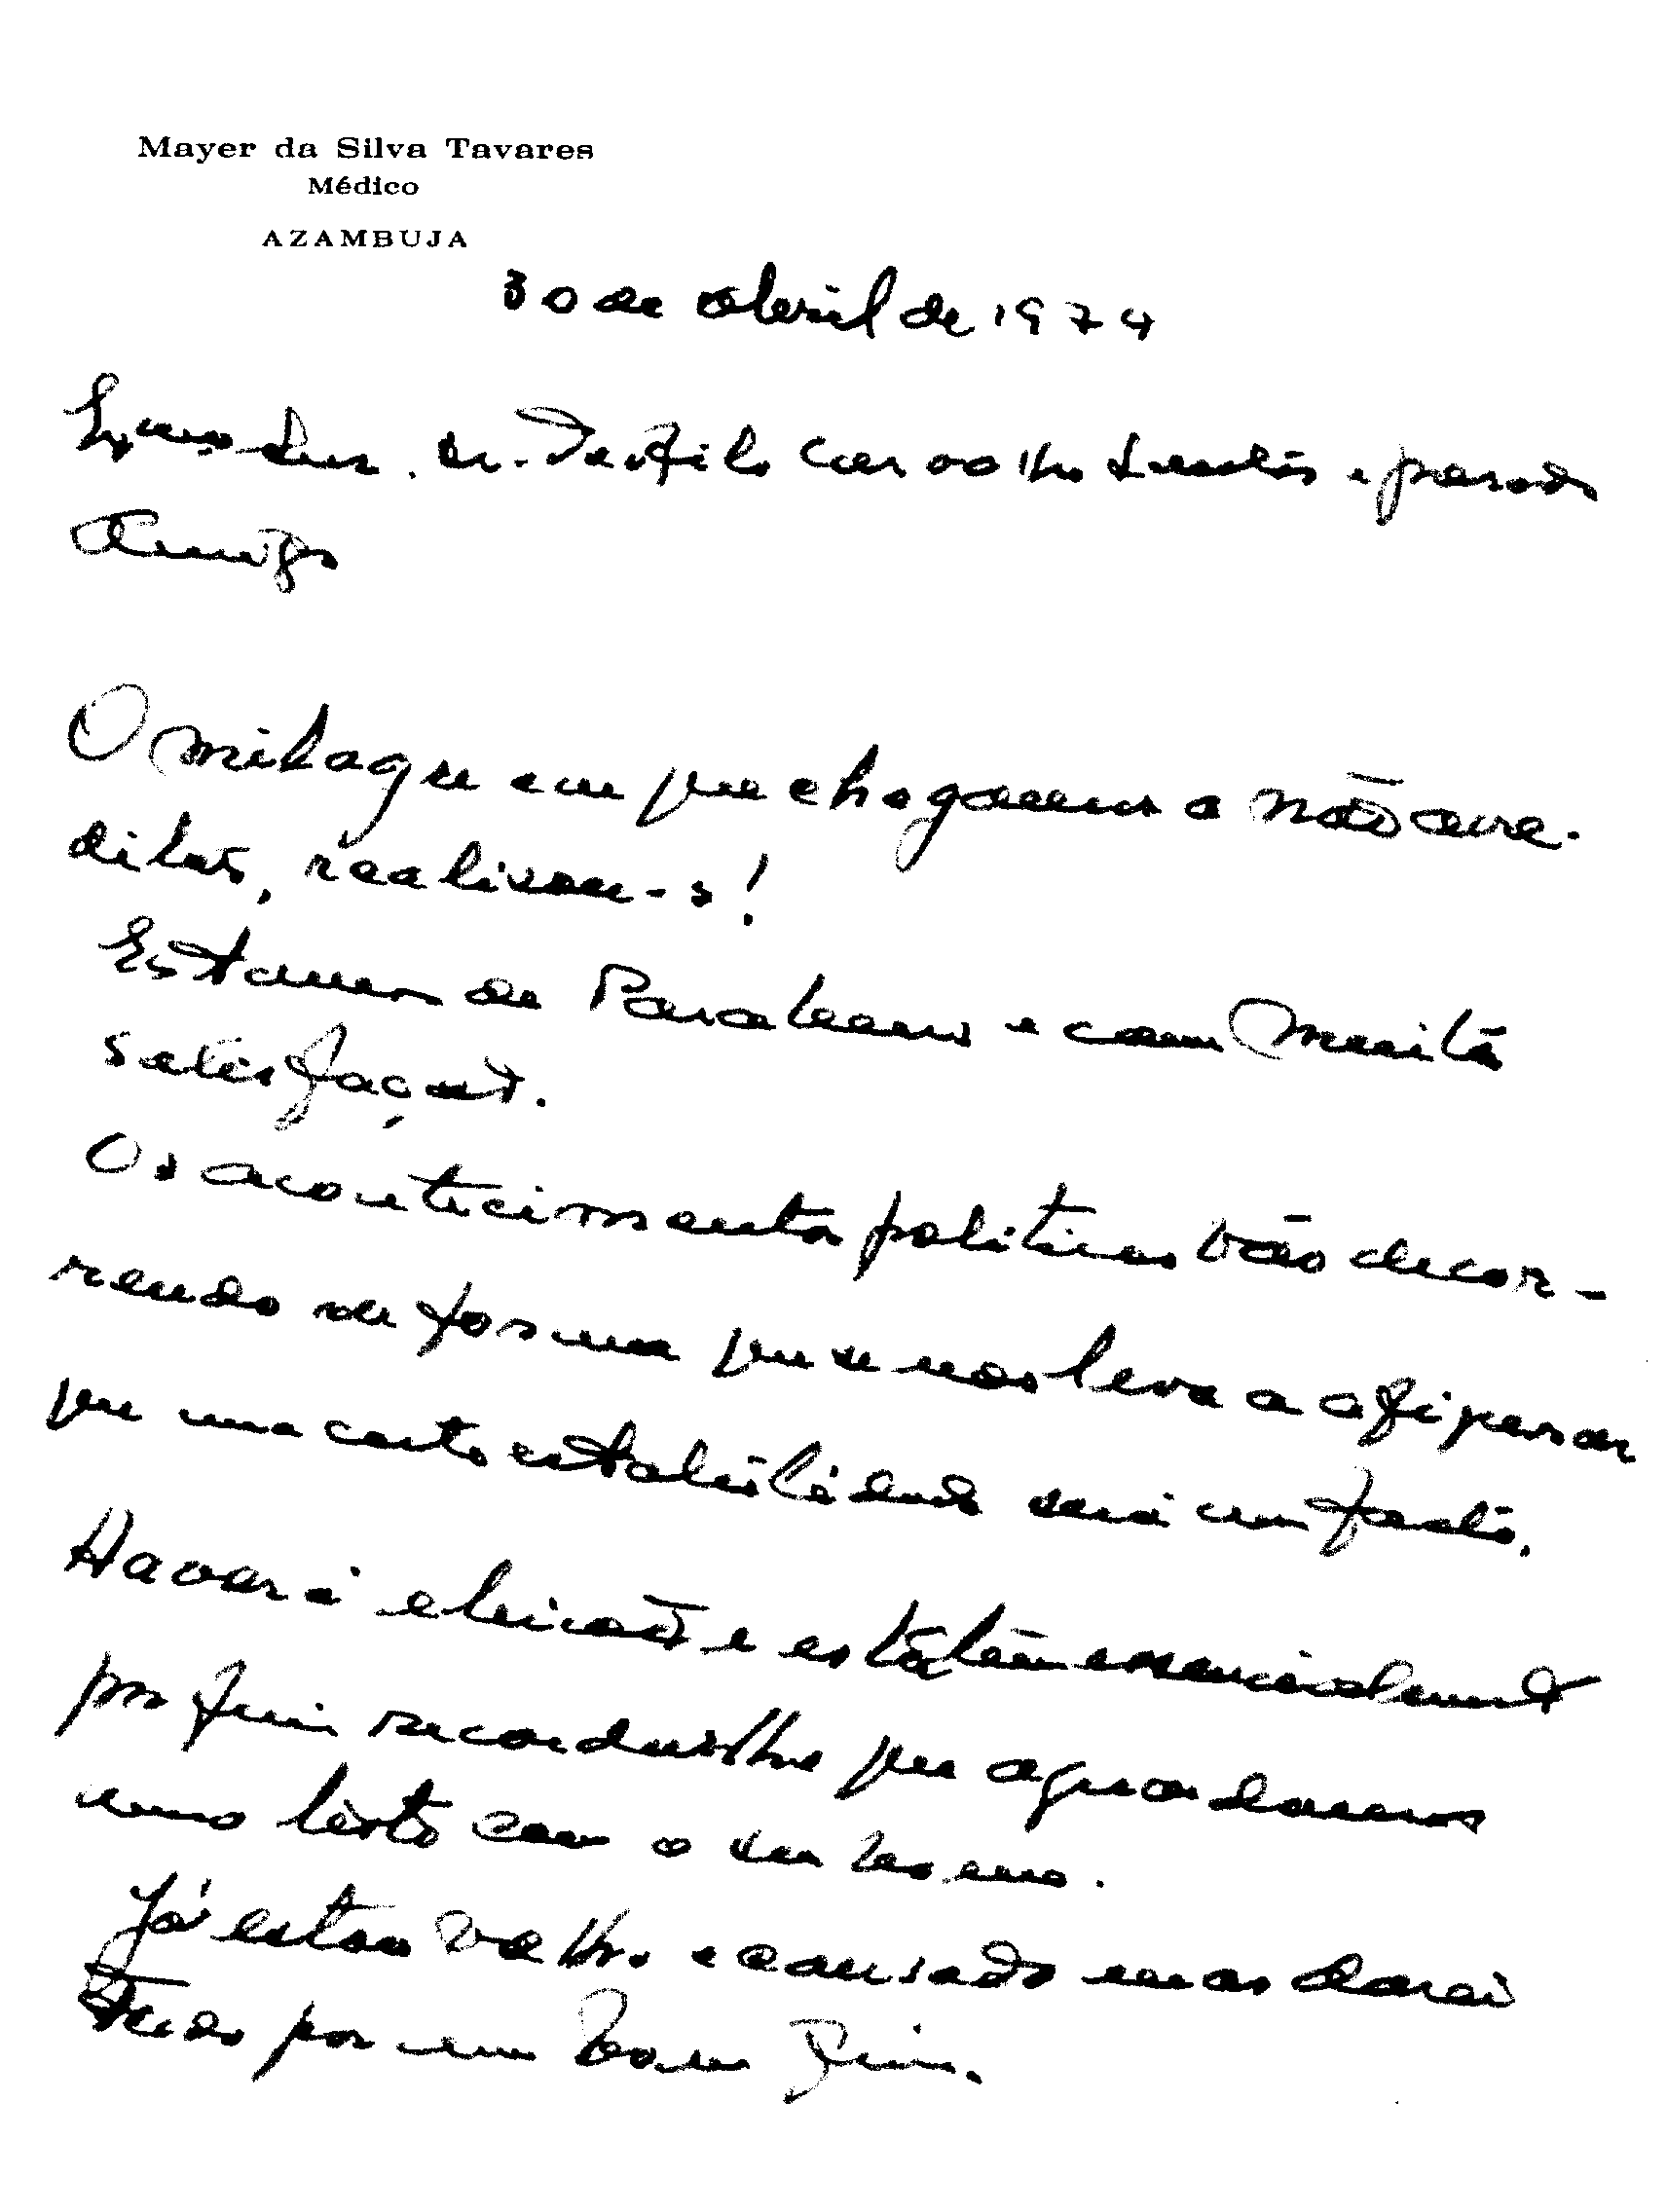 Mayer da Silva Tavares
Médico
AZAMBUJA
30 de abril de 1974
Exmo Snr. Dr. Teófilo Carvalho dos Santos e prezado
Amigo
O milagre em que chegamos a não acre-
ditar, realizou-se!
Estamos de Parabens e com muita
satisfação.
Os acontecimentos politicos vão decor-
rendo de forma que nos leva a pensar
que uma certa estabilidade será um facto.
Haverá eleição e esta tem essencialmente
por fim recordar-lhe que aguardamos
com o seu
Já estou velho e cansado mas darei
Tudo por um Bom Fim.